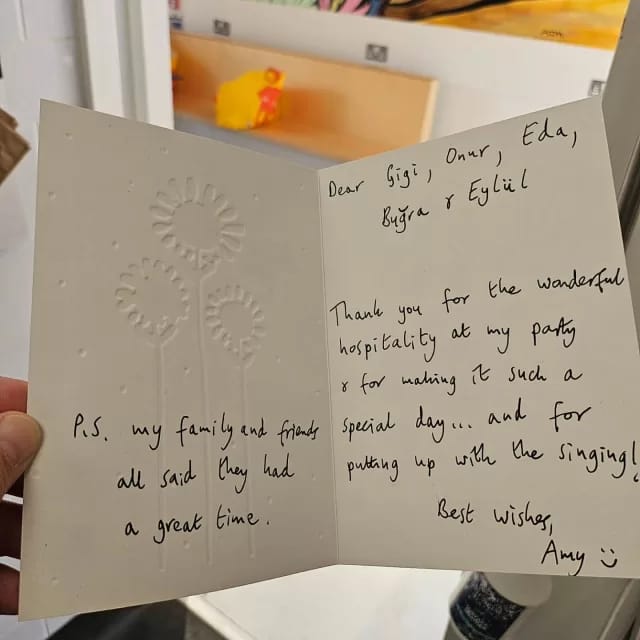 Dear Gigi, Onur, Eda,
Buğra & Eylül
Thank you for the wonderful
hospitality at my party
& for making it such a
special day... and for
putting up with the singing!
Best wishes,
Amy :)
P.S. my family and friends
all said they had
a great time.